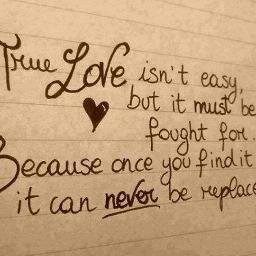 True Love isn't easy,
but it must be
fought for.
Because once you find it
it can never be replace